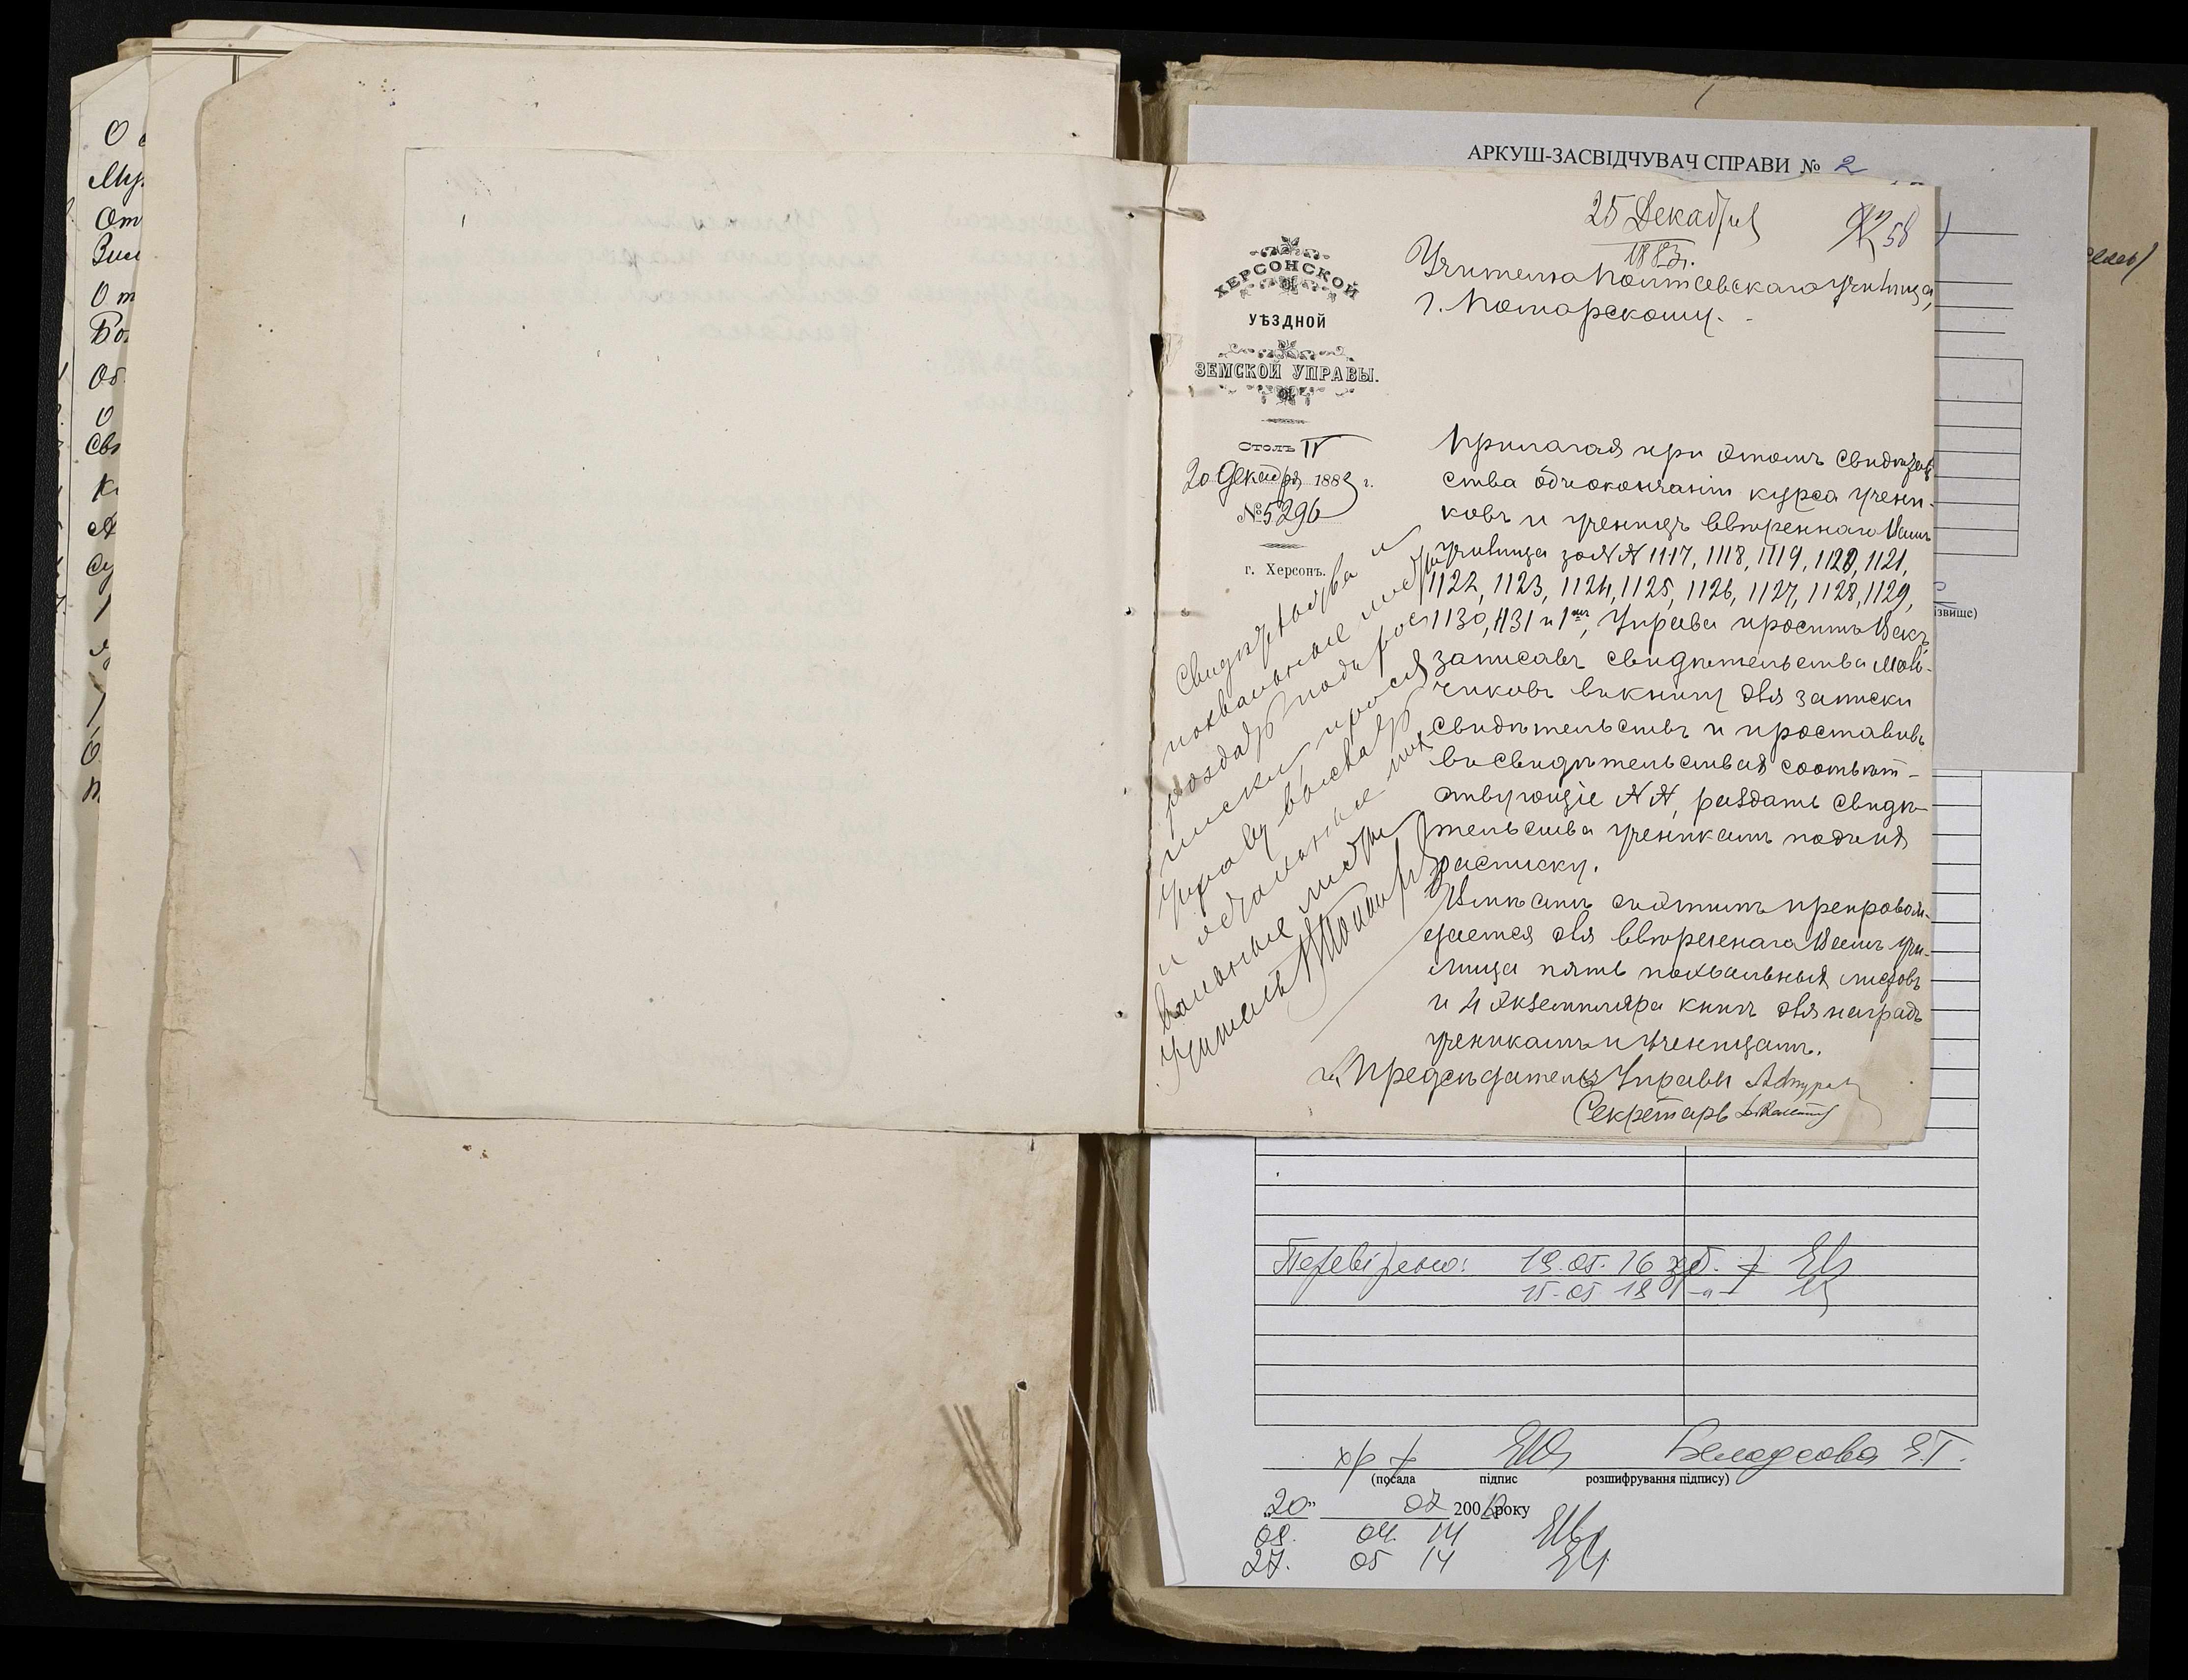 АРКУШ-ЗАСВІДЧУВАЧ СПРАВИ № 2
25 Декабря
1883 г.
58
ХЕРСОНСКОЙ
УѢЗДНОЙ
ЗЕМСКОЙ УПРАВЫ.
Столъ IV
20 Декабря 1883 г.
№ 5296
г. Херсонъ.
Учителю училища,
г.
Прилагая при этомъ свидѣтель
ства объ окончаніи курса учени-
ковъ и ученицъ ввѣреннаго Вамъ
училища за № № 1117, 1118, 1119, 1120, 1121,
1122, 1123, 1124, 1125, 1126, 1127, 1128, 1129,
1130, 1131 и Управа проситъ Васъ,
записавъ свидѣтельства маль-
чиковъ въ книгу для записки
свидѣтельствъ и проставивъ
въ свидѣтельствахъ соотвѣт-
ствующіе № №, раздать свидѣ-
тельства ученикамъ подъ ихъ
расписку.
Вмѣстѣ съ этимъ препровож-
дается для ввѣреннаго Вамъ учи-
лища пять похвальныхъ листовъ
и 4 экземпляра книгъ для наградъ
ученикамъ и ученицамъ.
Предсѣдатель Управы
Секретарь
Свидѣтельства и
похвальные листы
роздалъ подъ рос
писки, прося
Управу выслать
и остальные пох
вальные листы
Учитель
ізвище)
Перевірено: 19.05.16
15.05.18
(посада підпис розшифрування підпису)
„20” 02 200 року
09. 04. 14
27. 05 14